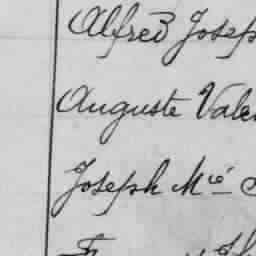 Alfred Josep
Auguste Vale
Joseph Mié